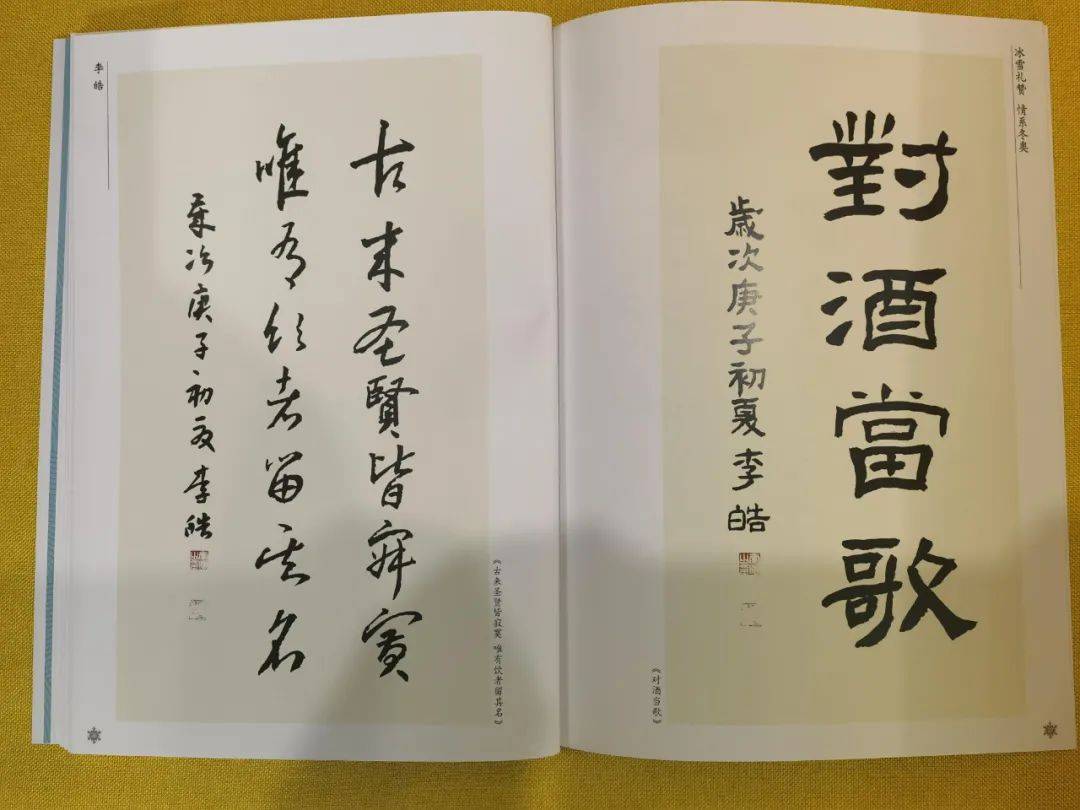 李皓
古来圣賢皆寂寞
唯有饮者留其名
歲次庚子初夏李皓
《古来圣贤皆寂寞 唯有饮者留其名》
冰雪礼赞 情系冬奥
對酒當歌
歲次庚子初夏李皓
《对酒当歌》